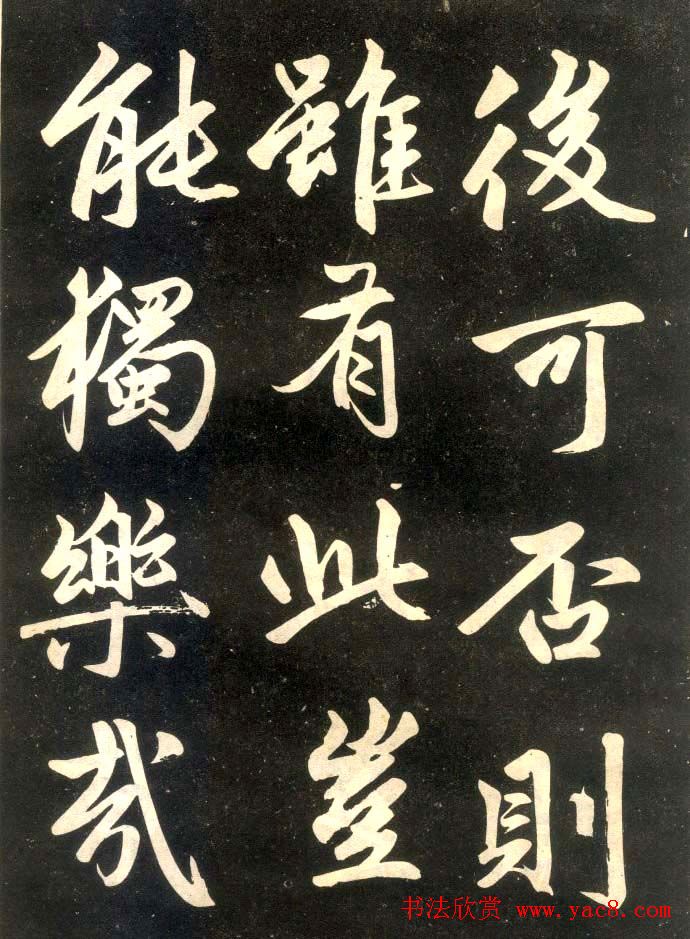 後可否則
雖有此豈
能獨樂哉
书法欣赏 www.yac8.com